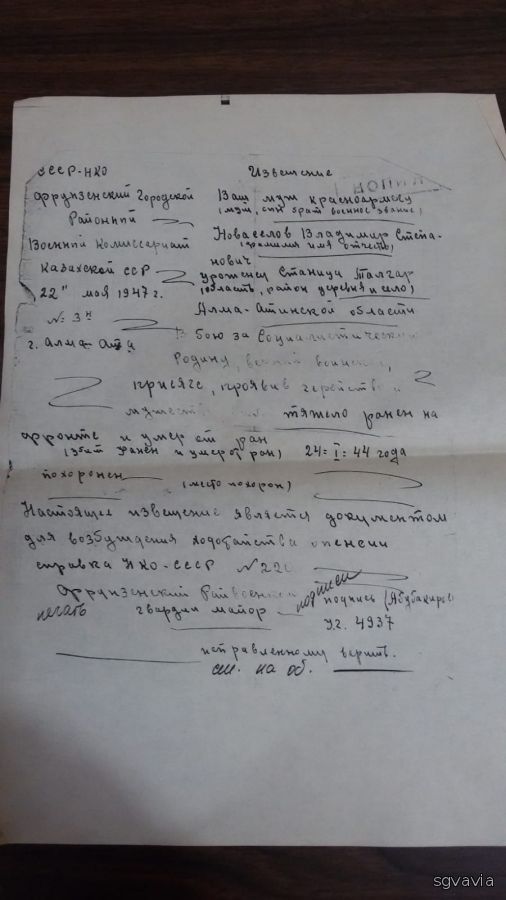 СССР-НКО
Извещение
КОПИЯ
Фрунзенский Городской
Районный
Военный Комиссариат
Казахской ССР
22" мая 1947 г.
№ 3н
г. Алма-Ата
Ваш муж красноармеец
(муж, сын брат военное звание)
Новоселов Владимир Степа-
(фамилия имя отчеств)
нович
уроженец Станица Талгар
(область, район деревня и село)
Алма-Атинской области
В бою за Социалистический
Родину, воинской,
присяге, проявив геройство и
мужество тяжело ранен на
фронте и умер от ран
(убит ранен и умер от ран) 24=I=44 года
похоронен
(место похорон)
Настоящее извещение является документом
для возбуждения ходотайства о пенсии
справка НКО-СССР №
Фрунзенский Райвоенком
печать гвардии майор подписи подпись (Абубакиров
У.г. 4937
исправленному верить.
см. на об.
sgvavia